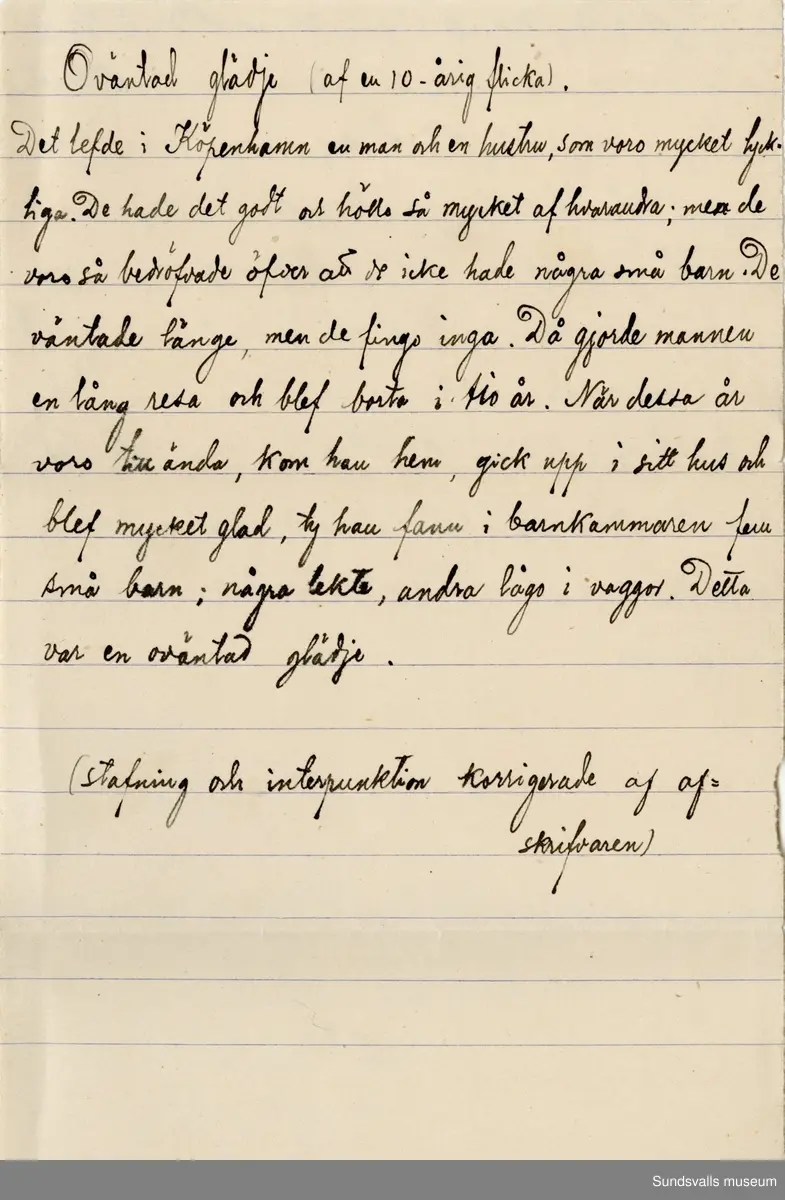 Oväntad glädje (af en 10-årig flicka).
Det lefde i Köpenhamn en man och en hustru, som voro mycket lyck-
liga. De hade det godt och höllo så mycket af hvarandra; men de
voro så bedröfvade öfver att de icke hade några små barn. De
väntade länge, men de fingo inga. Då gjorde mannen
en lång resa och blef borta i tio år. När dessa år
voro till ända, kom han hem, gick upp i sitt hus och
blef mycket glad, ty han fann i barnkammaren fem
små barn; några lekte, andra lågo i vaggor. Detta
var en oväntad glädje.
(stafning och interpunktion korrigerade af af=
skrifvaren)
Sundsvalls museum